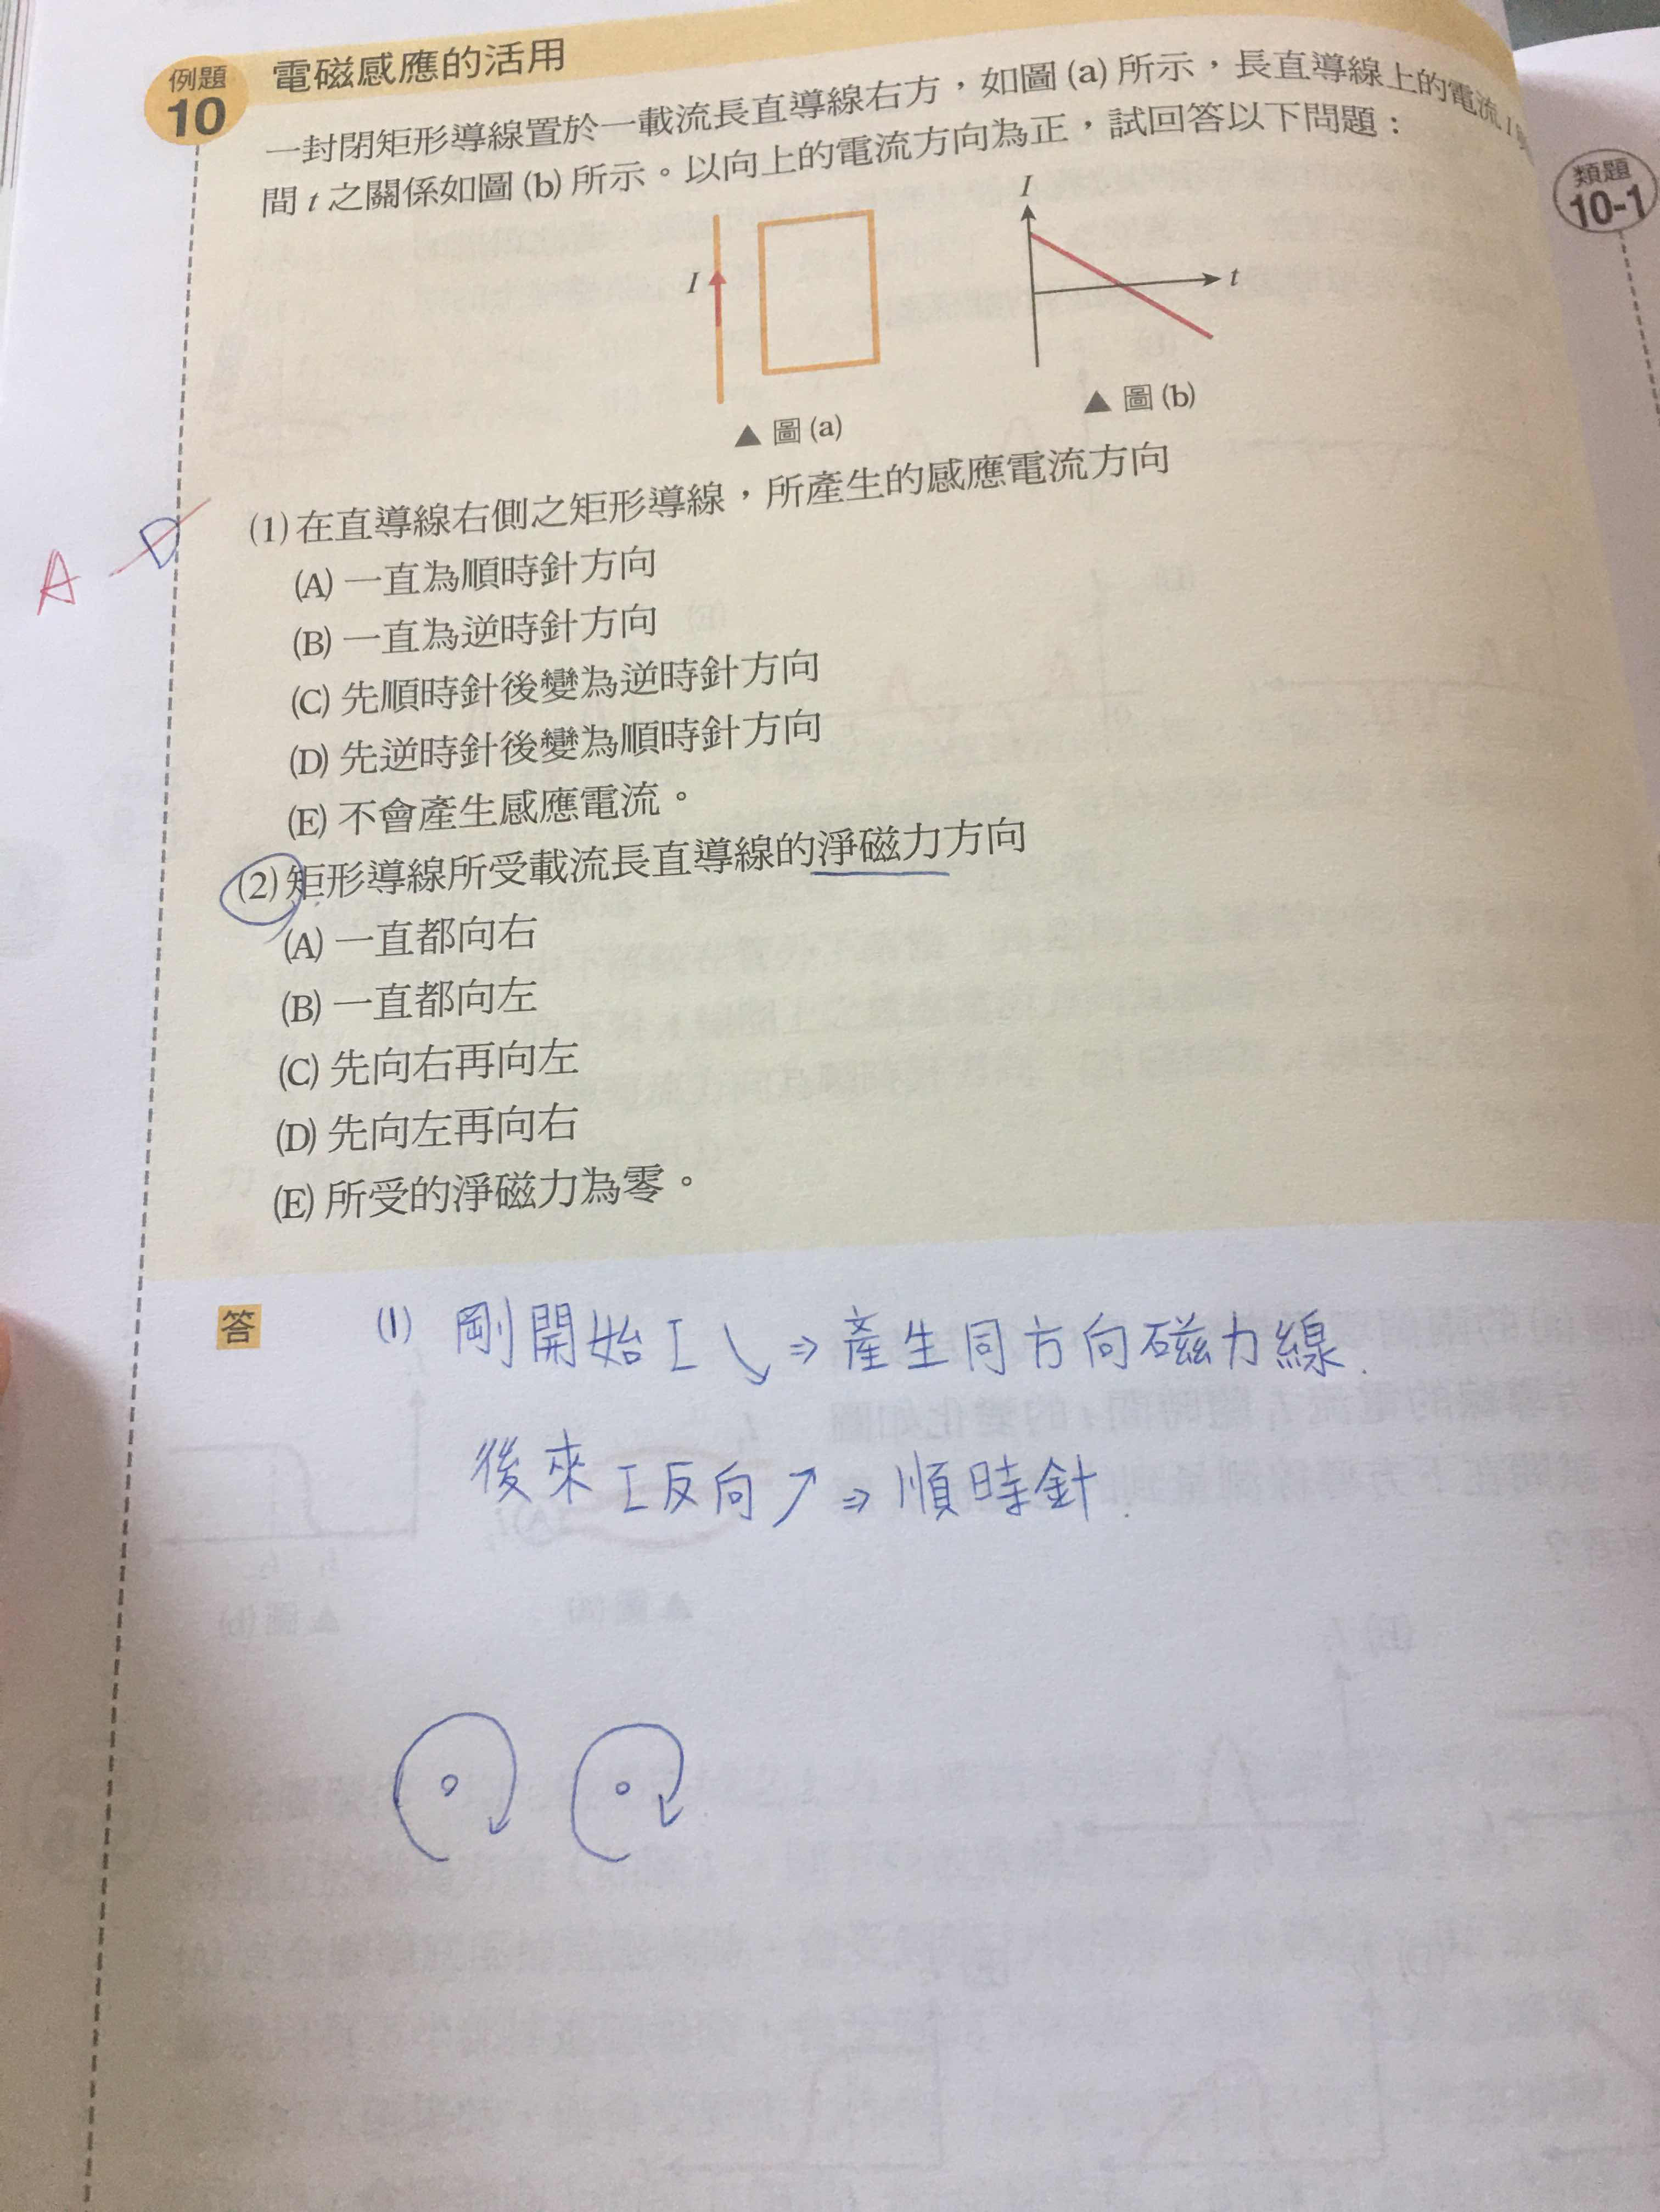 例題
10
電磁感應的活用
一封閉矩形導線置於一載流長直導線右方，如圖(a)所示，長直導線上的電流 I
間 t 之關係如圖(b)所示。以向上的電流方向為正，試回答以下問題：
類題
10-1
I
I
t
▲ 圖(a)
▲ 圖(b)
(1) 在直導線右側之矩形導線，所產生的感應電流方向
A D
(A) 一直為順時針方向
(B) 一直為逆時針方向
(C) 先順時針後變為逆時針方向
(D) 先逆時針後變為順時針方向
(E) 不會產生感應電流。
(2) 矩形導線所受載流長直導線的淨磁力方向
(A) 一直都向右
(B) 一直都向左
(C) 先向右再向左
(D) 先向左再向右
(E) 所受的淨磁力為零。
答
(1) 剛開始I↘⇒產生同方向磁力線.
後來I反向↗⇒順時針.